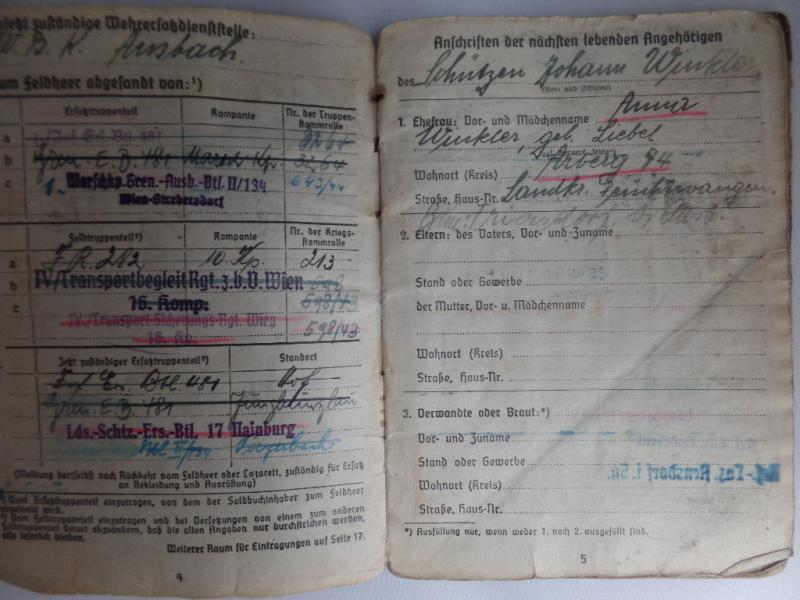 zuständige Wehrersatzdienststelle:
W. B. K. Ansbach.
um Feldheer abgesandt von:¹)
Ersatztruppenteil Kompanie Nr. der Truppen-
stammrolle
a 3264
b Gren. E. B. 481 Marsch Kp. 3264
c 1. Marschkp. Gren.-Ausb.-Btl. II/134 643/44
Wien-Strebersdorf
Feldtruppenteil²) Kompanie Nr. der Kriegs-
stammrolle
a J. R. 282 10. Kp. 213
b IV/Transportbegleit Rgt. z.b.V. Wien 598
16. Komp. 598/43
c IV/Transport-Sicherungs-Rgt. Wien
16. Kp. 598/43
Jetzt zuständiger Ersatztruppenteil³) Standort
Inf. Ers. Btl. 481 Hof
Gren. E. B. 481 Jungbunzlau
Lds.-Schtz.-Ers.-Btl. 17 Hainburg
(Meldung dortselbst nach Rückkehr vom Feldheer oder Lazarett, zuständig für Ersatz
an Bekleidung und Ausrüstung)
Vom Ersatztruppenteil einzutragen, von dem der Soldbuchinhaber zum Feldheer
abgesandt wird.
Vom Feldtruppenteil einzutragen und bei Versetzungen von einem zum anderen
Feldtruppenteil derart abzuändern, daß die alten Angaben nur durchstrichen werden,
also leserlich bleiben.
Weiterer Raum für Eintragungen auf Seite 17.
4
Anschriften der nächsten lebenden Angehörigen
des Schützen Johann Winkler
(Vor- und Zuname)
1. Ehefrau: Vor- und Mädchenname Anna
Winkler, geb. Liebel
Wohnort (Kreis) Arberg 94
Straße, Haus-Nr. Landkr. Feuchtwangen.
2. Eltern: des Vaters, Vor- und Zuname
Stand oder Gewerbe
der Mutter, Vor- u. Mädchenname
Wohnort (Kreis)
Straße, Haus-Nr.
3. Verwandte oder Braut:*)
Vor- und Zuname
Stand oder Gewerbe
Wohnort (Kreis)
Straße, Haus-Nr.
*) Ausfüllung nur, wenn weder 1. noch 2. ausgefüllt sind.
5